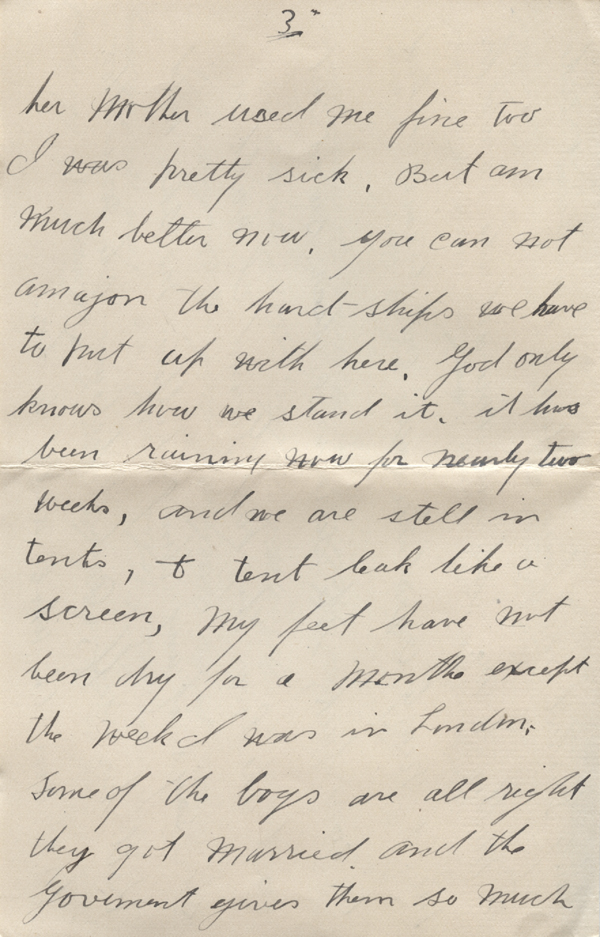 3"
her Mother used me fine too
I was pretty sick. But am
much better now. you can not
amajon the hard-ships we have
to put up with here. God only
knows how we stand it. it has
been raining now for nearly two
weeks, and we are still in
tents, & tent leak like a
screen, My feet have not
been dry for a months except
the week I was in London.
Some of the boys are all right
they got married and the
Goverment gives them so much